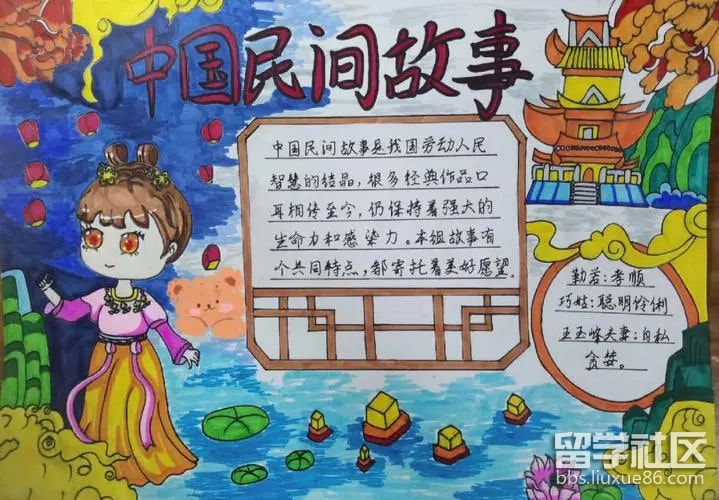 中国民间故事
中国民间故事是我国劳动人民
智慧的结晶，很多经典作品口
耳相传至今，仍保持着强大的
生命力和感染力。本组故事有
个共同特点，都寄托着美好愿望。
勤若：孝顺
聪明伶俐
夫妻：自私
贪婪。
留学社区
bbs.liuxue86.com